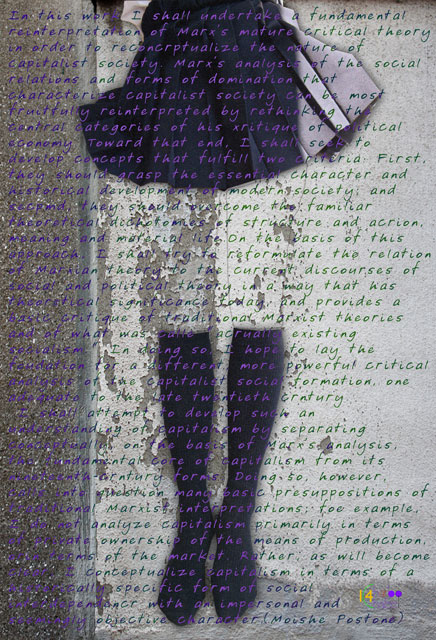 In this work I shall undertake a fundamental
reinterpretation of Marx's mature critical theory
in order to reconcrptualize the nature of
capitalist society. Marx's analysis of the social
relations and forms of domination that
characterize capitalist society can be most
fruitfully reinterpreted by rethinking the
central categories of his xritique of political
economy. Toward that end, I shall seek to
develop concepts that fulfill two criteria: First,
they should grasp the essential character and
historical development of modern society; and
second, they should overcome the familiar
theoretical dichotomies of structure and acrion,
meaning and material life. On the basis of this
approach, I shall try to reformulate the relation
of Marxian theory to the current discourses of
social and political theory in a way that has
theoretical significance today, and provides a
basic critique of traditional Marxist theories
and of what was called actually existing
socialism. In doing so, I hope to lay the
foundation for a different, more powerful critical
analysis of the capitalist social formation, one
adequate to the late twentieth crntury.
I shall attempt to develop such an
understanding of capitalism by separating
conceptually, on the basis of Marx's analysis,
the fundamental core of capitalism from its
nineteenth-crntury forms. Doing so, however,
calls into question many basic presuppositions of
traditional Marxist interpretations; foe example,
I do not analyze capitalism primarily in terms
of private ownership of the means of production,
or in terms of the market. Rather, as will become
clear, I conceptualize capitalism in terms of a
historically specific form of social
interdependencr with an impersonal and
seemingly objective character (Moishe Postone)
14